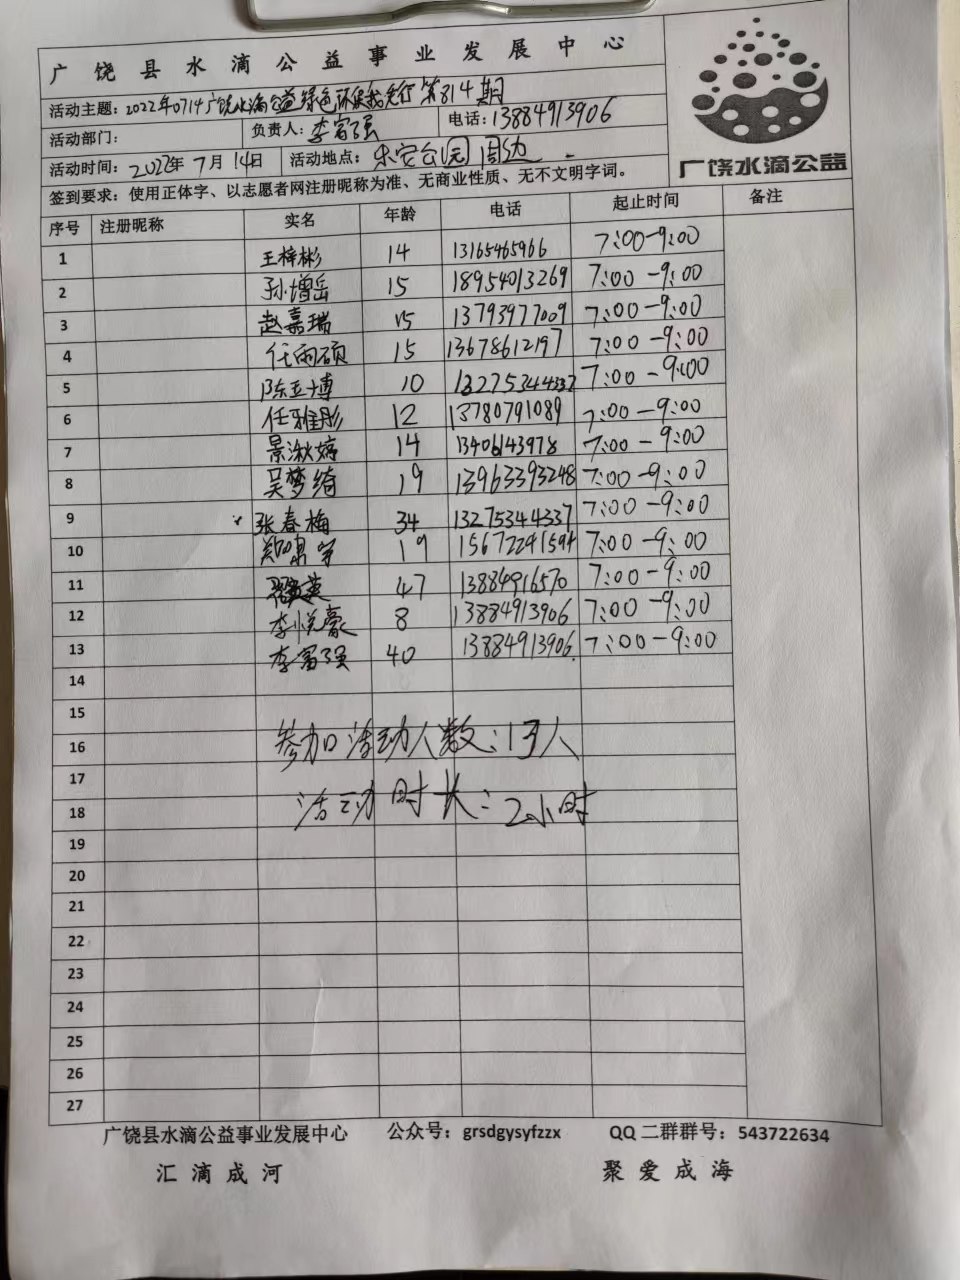 广饶县水滴公益事业发展中心
活动主题：2022年0714广饶水滴公益绿色环保我先行第814期
活动部门： 负责人：李富强 电话：13884913906
活动时间：2022年7月14日 活动地点：乐安公园周边
签到要求：使用正体字、以志愿者网注册昵称为准、无商业性质、无不文明字词。
广饶水滴公益
序号 注册昵称 实名 年龄 电话 起止时间 备注
1 王梓彬 14 13165465966 7:00-9:00
2 孙增岳 15 18954013269 7:00-9:00
3 赵嘉瑞 15 13793977009 7:00-9:00
4 任雨硕 15 13678612197 7:00-9:00
5 陈亚博 10 13275344337 7:00-9:00
6 任雅彤 12 13780791089 7:00-9:00
7 景淑婷 14 13406143978 7:00-9:00
8 吴梦绮 19 13963393248 7:00-9:00
9 张春梅 34 13275344337 7:00-9:00
10 19 15672241594 7:00-9:00
11 47 13884916570 7:00-9:00
12 李悦豪 8 13884913906 7:00-9:00
13 李富强 40 13884913906 7:00-9:00
14
15
16 参加活动人数：13人
17
18 活动时长：2小时
19
20
21
22
23
24
25
26
27
广饶县水滴公益事业发展中心 公众号：grsdgysyfzzx QQ二群群号：543722634
汇滴成河 聚爱成海